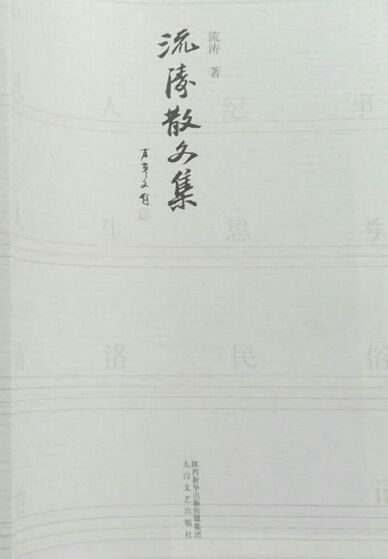 流涛 著
流涛散文集
方英文题
人纪
生思考
洛民俗
陕西新华出版传媒集团
太白文艺出版社